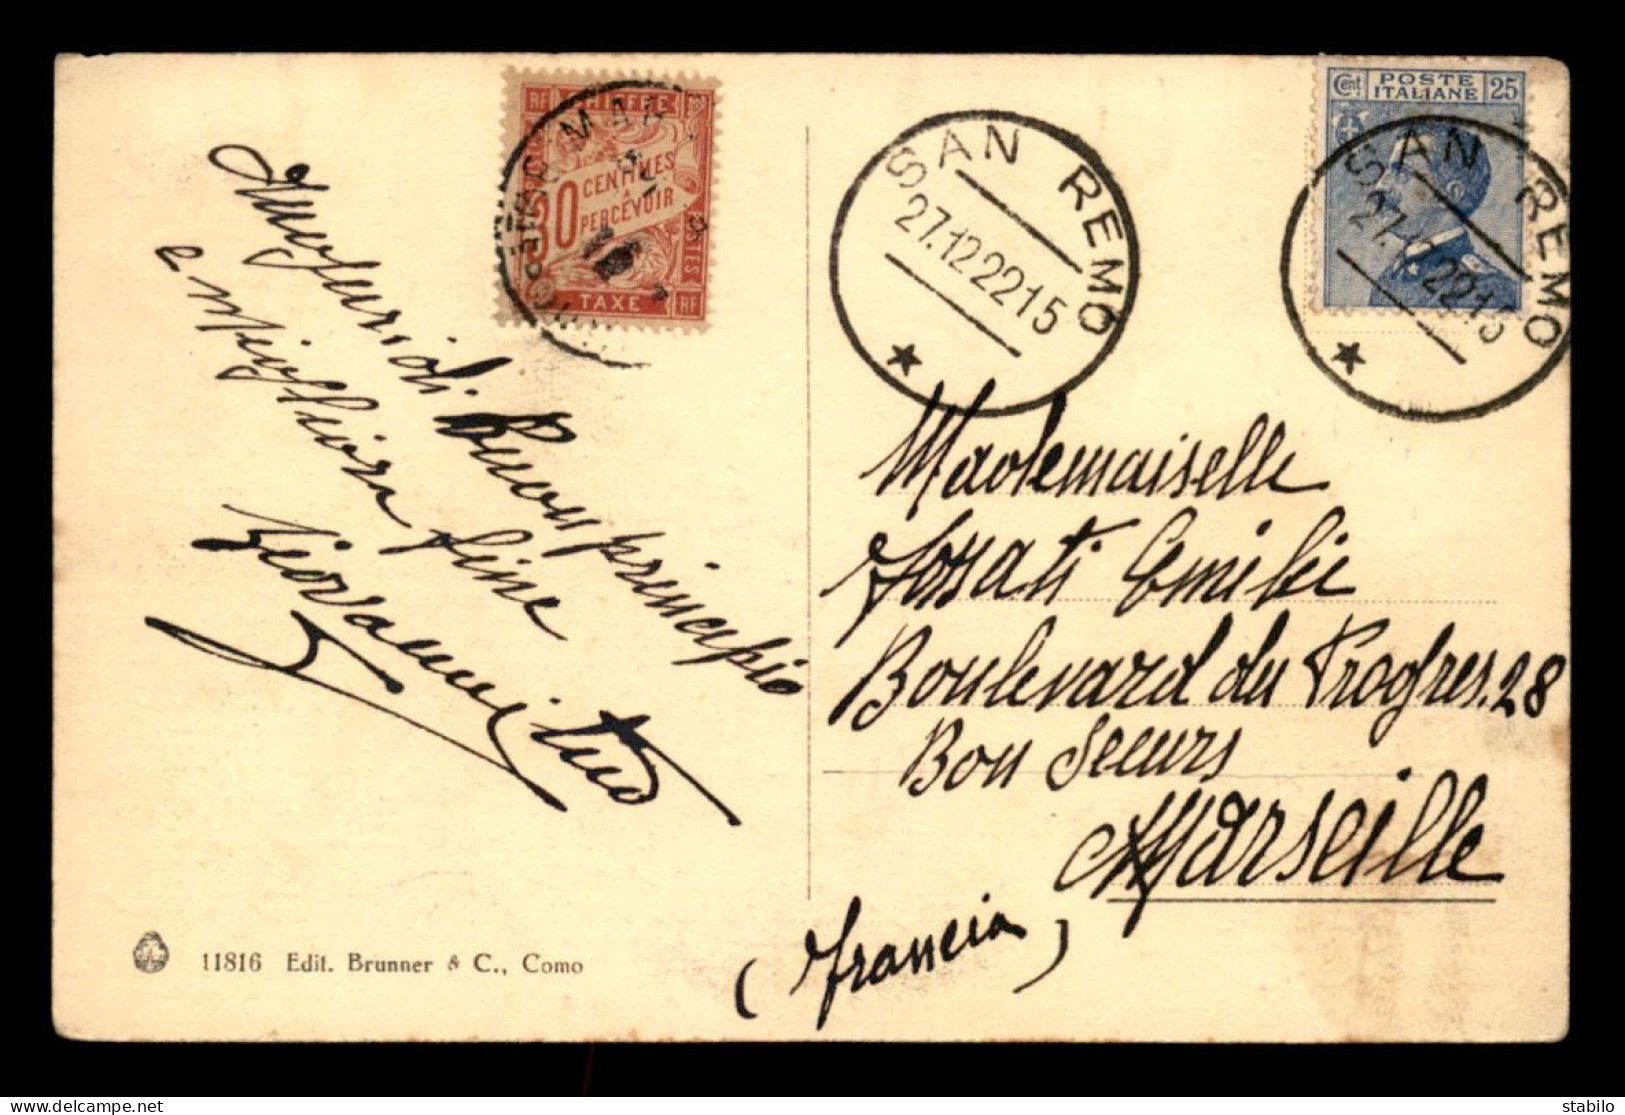 Auguri di Buon principio
e migliore fine
Giovannino tuo
RF CHIFFRE
30
CENTIMES
A
PERCEVOIR
TAXE RF
SAN REMO
27.12.22 15
Cent POSTE ITALIANE 25
SAN REMO
27.12.22 15
Mademoiselle
Fossati Emilie
Boulevard du Progres.28
Bon Securs
Marseille
(Francia)
11816 Edit. Brunner & C., Como
stabilo